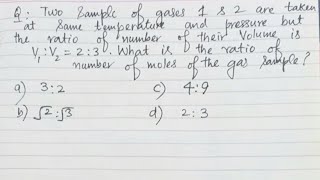 Q: Two Sample of gases 1 & 2 are taken
at same temperature and pressure but
the ratio of number of their volume is
V₁:V₂ = 2:3. What is the ratio of
number of moles of the gas sample?
a) 3:2 c) 4:9
b) √2:√3 d) 2:3